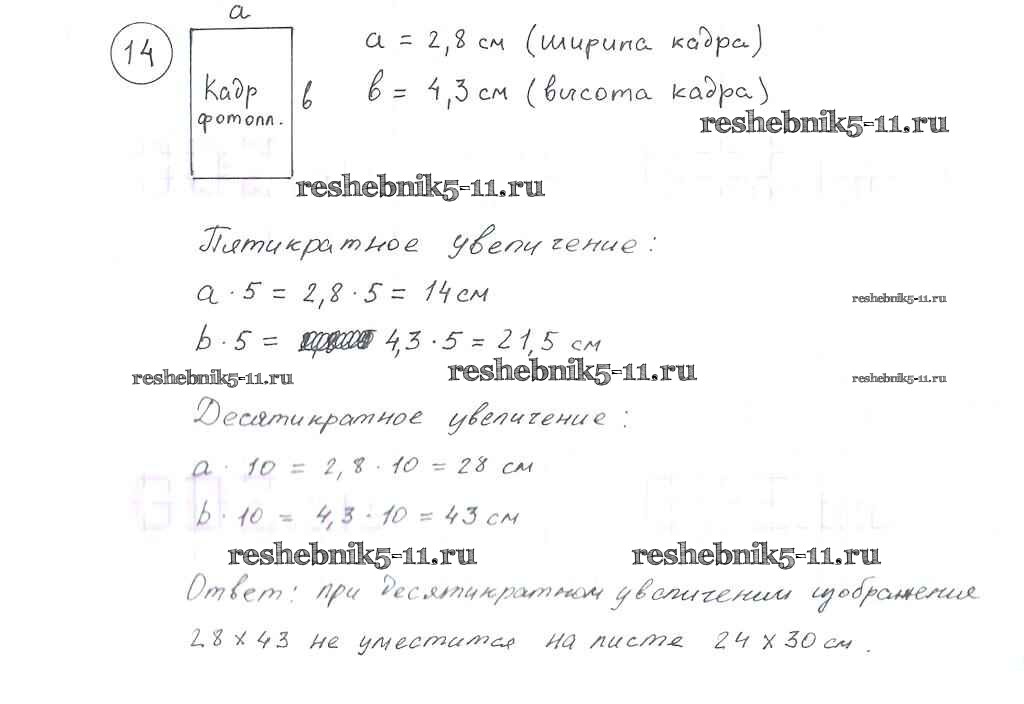 а
14
a = 2,8 см (ширина кадра)
Кадр
фотопл.
в
в = 4,3 см (высота кадра)
reshebnik5-11.ru
reshebnik5-11.ru
Пятикратное увеличение:
a · 5 = 2,8 · 5 = 14 см
reshebnik5-11.ru
b · 5 = 4,3 · 5 = 21,5 см
reshebnik5-11.ru
reshebnik5-11.ru
reshebnik5-11.ru
Десятикратное увеличение:
a · 10 = 2,8 · 10 = 28 см
b · 10 = 4,3 · 10 = 43 см
reshebnik5-11.ru
reshebnik5-11.ru
Ответ: при десятикратном увеличении изображения
28 х 43 не уместится на листе 24 х 30 см.